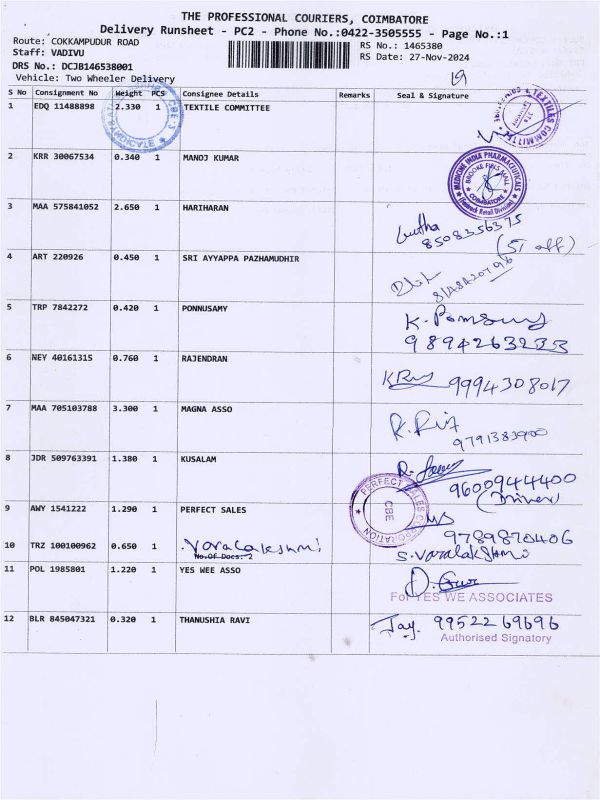 THE PROFESSIONAL COURIERS, COIMBATORE
Delivery Runsheet - PC2 - Phone No.:0422-3505555 - Page No.:1
Route: COKKAMPUDUR ROAD
RS No.: 1465380
Staff: VADIVU
RS Date: 27-Nov-2024
DRS No.: DCJB146538001
Vehicle: Two Wheeler Delivery
19
S No Consignment No Weight PCS Consignee Details Remarks Seal & Signature
1 EDQ 11488898 2.330 1 TEXTILE COMMITTEE
2 KRR 30067534 0.340 1 MANOJ KUMAR
MEDICINE INDIA PHARMACEUTICALS
BROOKE FIELDS MALL
COIMBATORE
(Network Retail Division)
3 MAA 575841052 2.650 1 HARIHARAN
8508356375
4 ART 220926 0.450 1 SRI AYYAPPA PAZHAMUDHIR
5 TRP 7842272 0.420 1 PONNUSAMY
9894263233
6 NEY 40161315 0.760 1 RAJENDRAN
9994308017
7 MAA 705103788 3.300 1 MAGNA ASSO
9791383900
8 JDR 509763391 1.380 1 KUSALAM
9600944400
(Driver)
9 AWY 1541222 1.290 1 PERFECT SALES
PERFECT SALES CORPORATION
CBE
9789870406
10 TRZ 100100962 0.650 1 Varalakshmi
No.Of Docs: 2
S. Varalakshmi
11 POL 1985801 1.220 1 YES WEE ASSO
For YES WE ASSOCIATES
12 BLR 845047321 0.320 1 THANUSHIA RAVI
Jay. 9952269696
Authorised Signatory